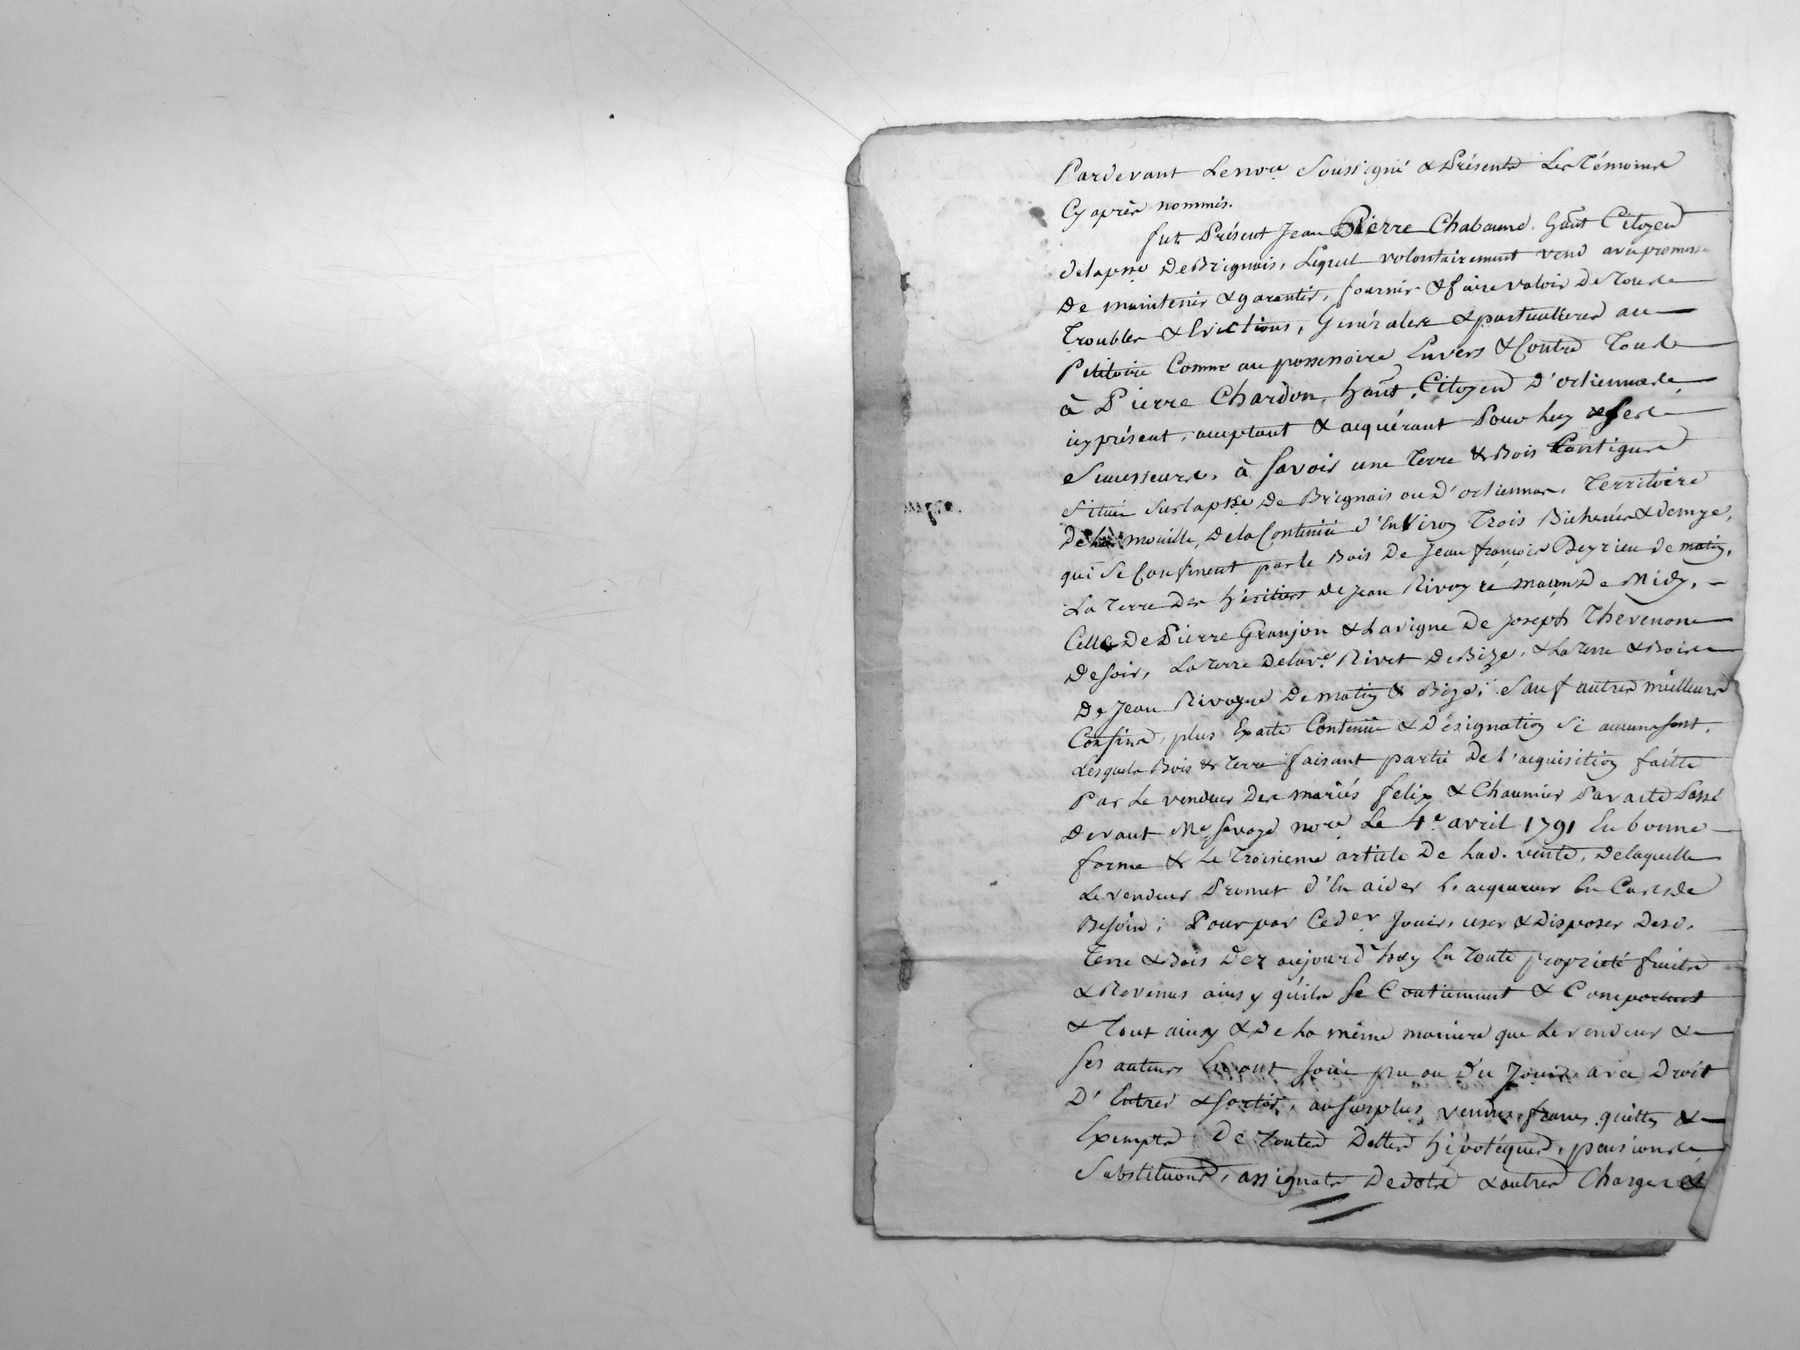 Pardevant Le nore Soussigné & Présents Les Témoins
Cy après nommés.
fut Présent Jean Pierre Chabanne hant Citoyen
de la psse De Brignais, Lequel volontairement vend avec promesse
De maintenir & garantir, fournir & faire valoir De Tous
Troubles & Evictions, Générales & particulieres au
Petitoire Comme au possessoire Envers & Contre Tous
à Pierre Chardon, hant, Citoyen D'orliennas
icy présent, acceptant & acquérant Pour luy & ses
Successeurs, à savoir une Terre & Bois Contigus
Situés Sur la psse De Brignais ou D'orliennas, Territoire
De la mouille, De la Contenüe d'Environ Trois Bicherées & demye,
qui Se Confinent par le Bois De Jean françois Peyrieu de matin,
La Terre Des héritiers de Jean Rivoyre maçon De Midy,
Celle De Pierre Granjon & La vigne De Joseph Thevenon
De soir, La Terre De la ve Rivet De Bize, & La Terre & Bois
De Jean Rivoyre De matin & Bize; Sauf autres meilleurs
Confins, plus Exacte Contenüe & Désignation Si aucuns sont,
Lesquels Bois & Terre faisant partie De l'acquisition faitte
Par Le vendeur Des mariés felix & Chaumier Par acte Passé
Devant Me Savoye nore Le 4e avril 1791 En bonne
forme & Le Troisieme article De Lad. vente, De laquelle
Le vendeur Promet d'En aider L'acquereur En Cas de
Besoin; Pour par Ce der Jouir, user & Disposer Desd.
Terre & Bois Dez aujourd'huy En Toute propriété fruits
& Revenus ainsy qu'ils se Contiennent & Comportent
& Tout ainsy & De La même maniere que Le vendeur &
Ses auteurs En ont Joüi pu ou Du Jouir, avec Droit
D'Entrer & sortir, au surplus vendus francs quittes &
Exempts De Toutes Dettes hipotéques, pensions
Substituons, assignats De dots & autres Charges &